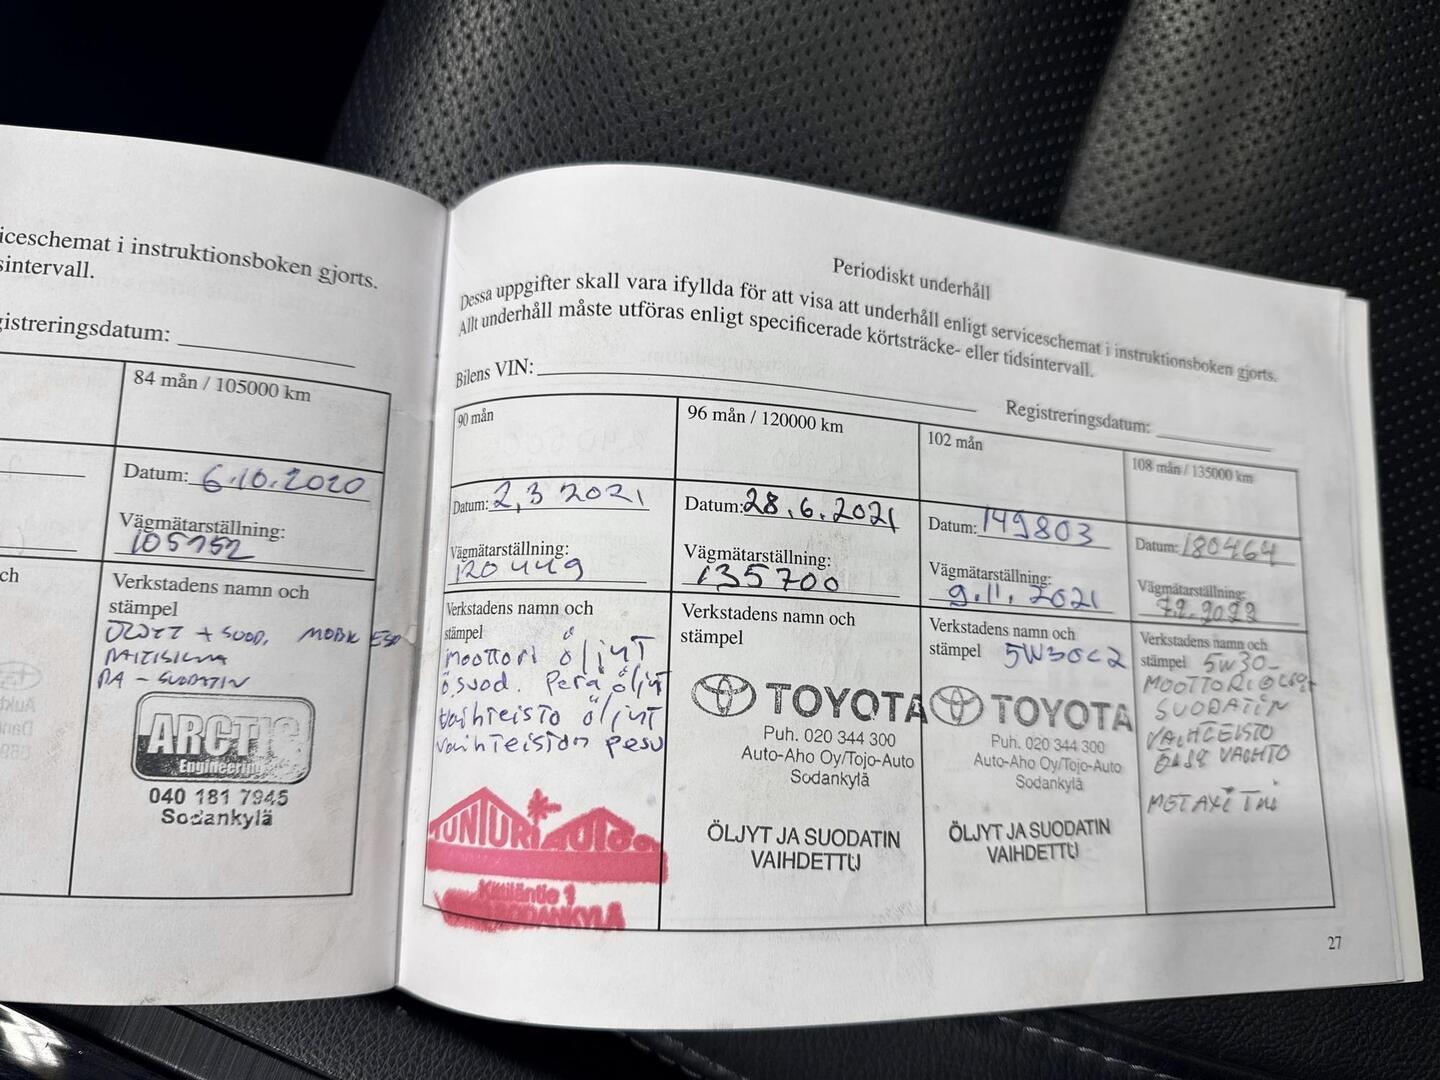 iceschemat i instruktionsboken gjorts.
sintervall.
gistreringsdatum:
84 mån / 105000 km
Datum: 6.10.2020
Vägmätarställning:
105752
ch
Verkstadens namn och
stämpel
ÖLJYT + SUOD.
RAITISILMA
PA - SUODATIN
ARCTIC
Engineering
040 181 7945
Sodankylä
Periodiskt underhåll
Dessa uppgifter skall vara ifyllda för att visa att underhåll enligt serviceschemat i instruktionsboken gjorts.
Allt underhåll måste utföras enligt specificerade körtsträcke- eller tidsintervall.
Bilens VIN:
Registreringsdatum:
90 mån
Datum: 2,3 2021
Vägmätarställning:
120449
Verkstadens namn och
stämpel
moottori öljyt
ö.suod. Perä öljyt
vaihteisto öljyt
vaihteiston pesu
TUNTURI AUTO
Kittiläntie 1
SODANKYLÄ
96 mån / 120000 km
Datum: 28.6.2021
Vägmätarställning:
135700
Verkstadens namn och
stämpel
TOYOTA
Puh. 020 344 300
Auto-Aho Oy/Tojo-Auto
Sodankylä
ÖLJYT JA SUODATIN
VAIHDETTU
102 mån
Datum: 149803
Vägmätarställning:
9.11.2021
Verkstadens namn och
stämpel 5W30C2
TOYOTA
Puh. 020 344 300
Auto-Aho Oy/Tojo-Auto
Sodankylä
ÖLJYT JA SUODATIN
VAIHDETTU
108 mån / 135000 km
Datum: 180464
Vägmätarställning:
7.2.2022
Verkstadens namn och
stämpel 5W30-
SUODATIN
VAIHTEISTO
VAIHTO
27